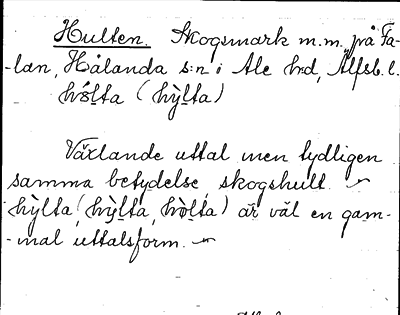 Hulten. Skogsmark m.m. på Fa-
-lan, Hålanda s:n i Ale hrd, Älfsb. l.
hól̥ta (hỳl̥ta)
Växlande uttal men tydligen
samma betydelse, skogshult.
hỳl̥ta (hỳl̥ta, hòl̥ta) är väl en gam-
-mal uttalsform.